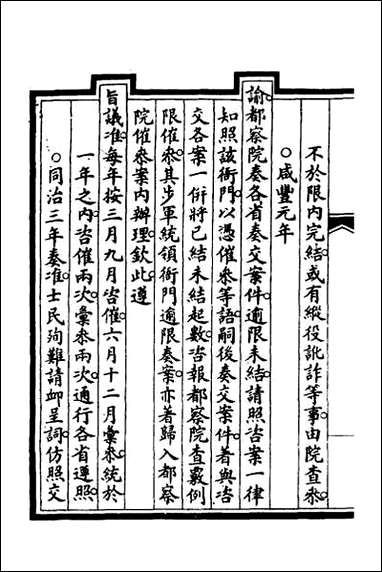 不於限内完結或有縱役訛詐等事由院查叅
○咸豐元年
諭都察院奏各省奏交案件逾限未結請照咨案一律
知照該衙門以憑催叅等語嗣後奏交案件着與咨
交各案一併將已結未結起數咨報都察院查覈例
限催叅其步軍統領衙門逾限奏案亦著歸入都察
院催叅案内辦理欽此遵
旨議准每年按三月九月咨催六月十二月彙叅統於
一年之内咨催兩次彙叅兩次通行各省遵照
○同治三年奏准士民殉難請卹呈詞仿照交